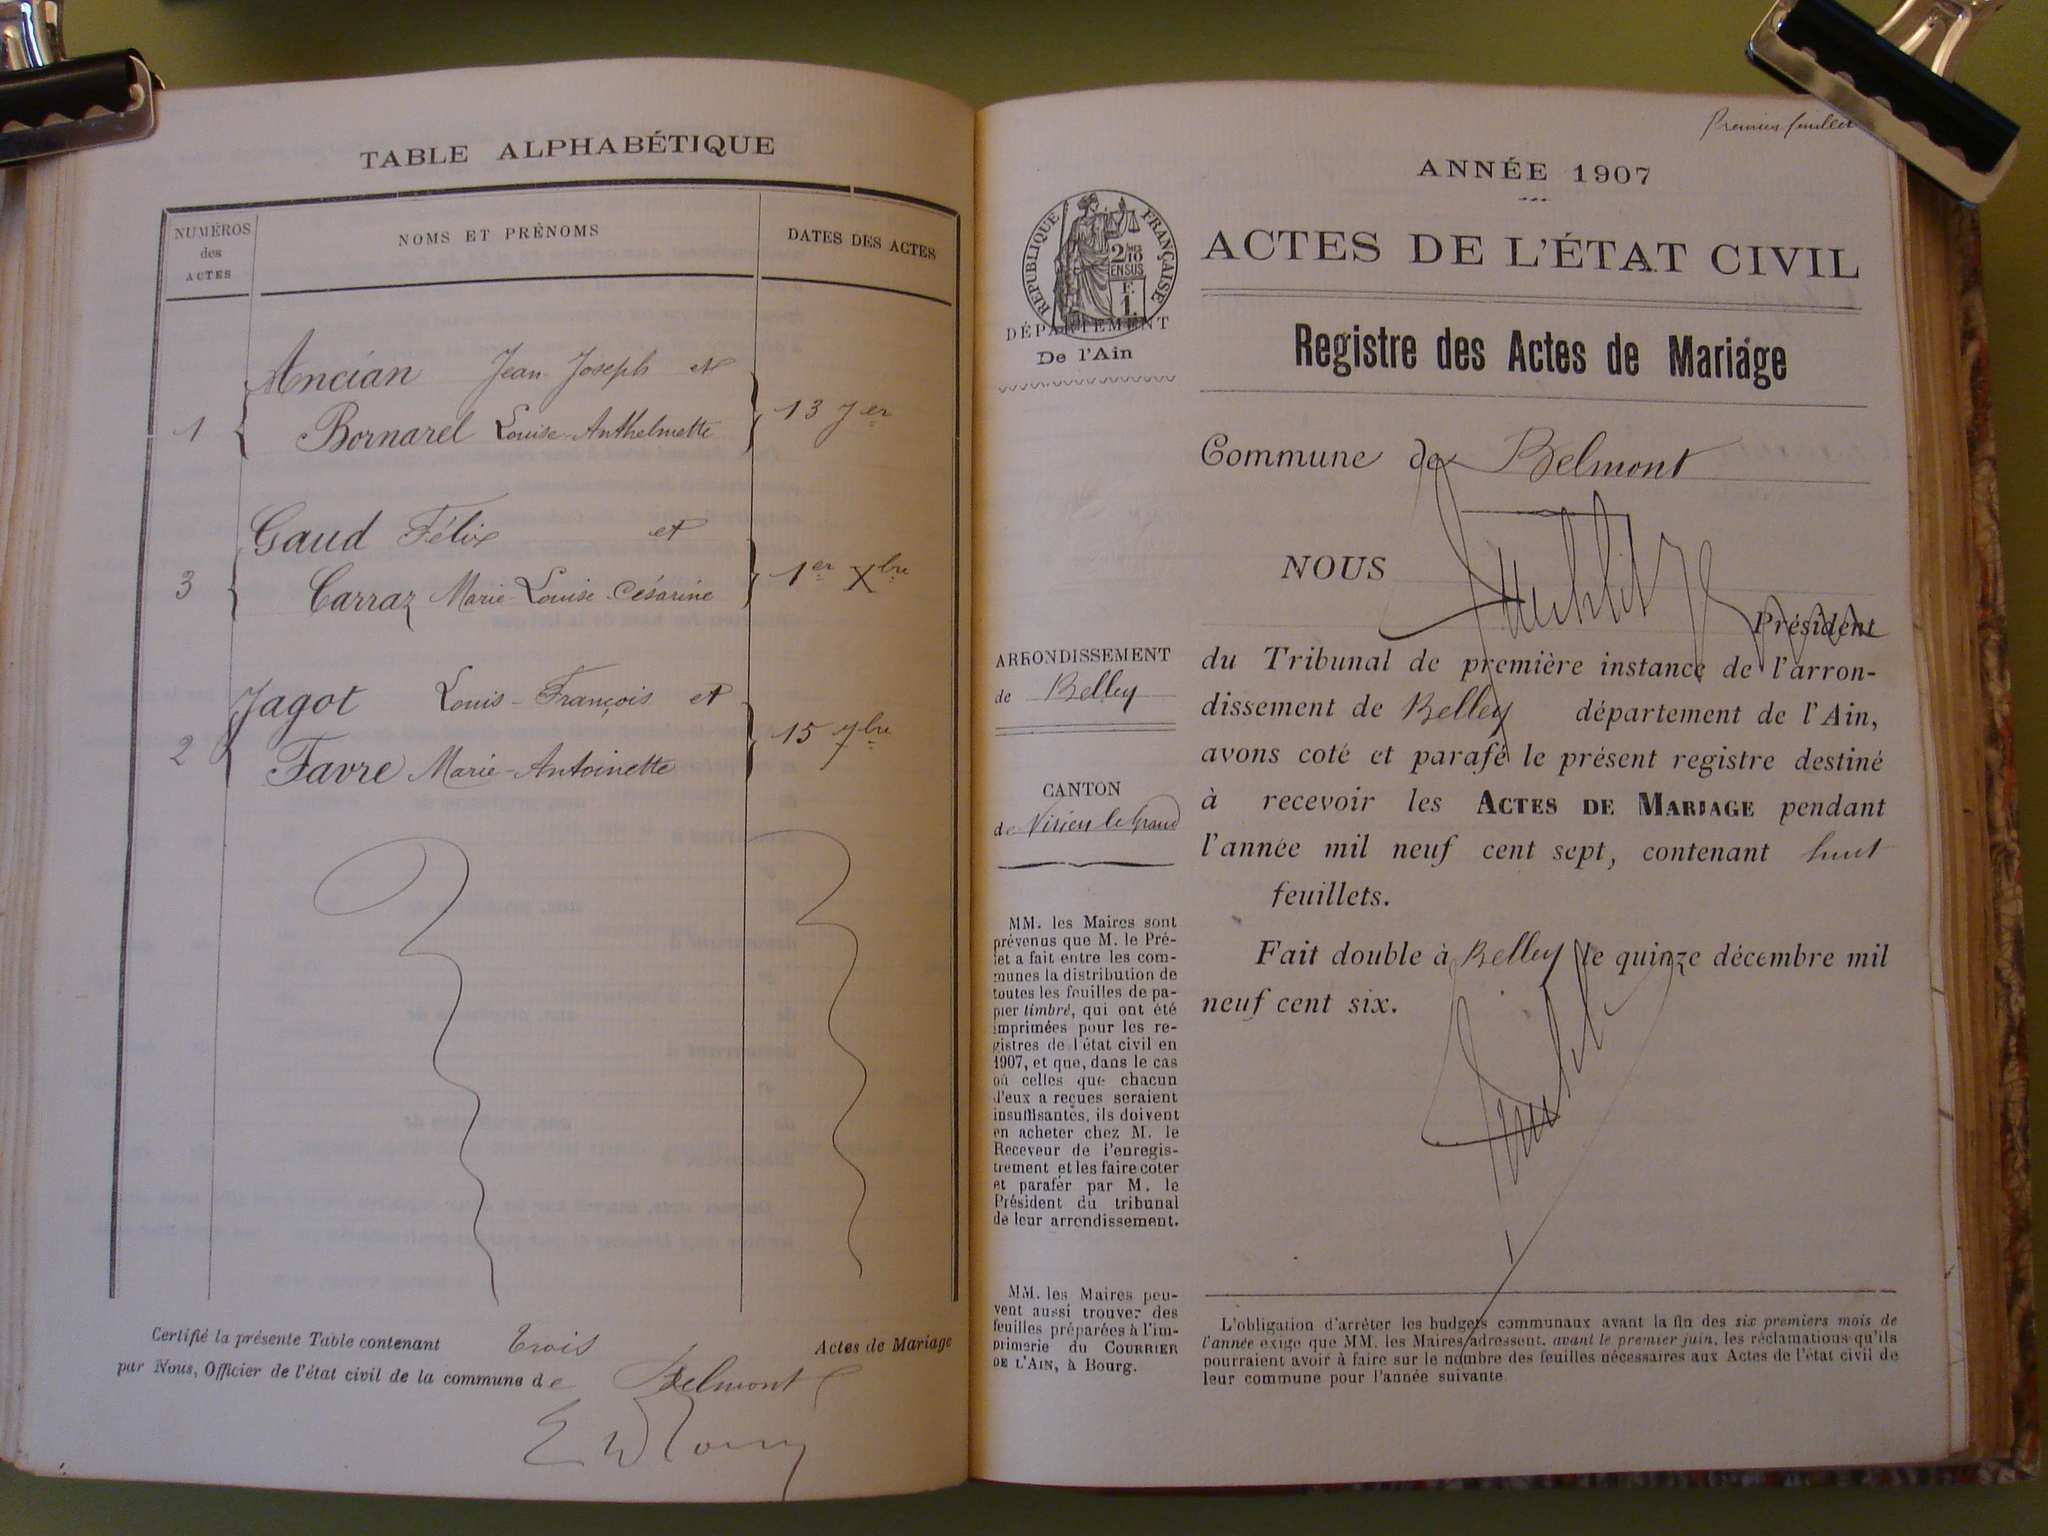 TABLE ALPHABÉTIQUE
NUMÉROS
des
ACTES
NOMS ET PRÉNOMS
DATES DES ACTES
Ancian Jean-Joseph et
1
Bornarel Louise-Anthelmette
13
Gaud Félix et
3
Carraz Marie-Louise-Césarine
1er Xbre
Jagot Louis-François et
2
Favre Marie-Antoinette
15 7bre
Certifié la présente Table contenant trois Actes de Mariage
par Nous, Officier de l'état civil de la commune de Belmont
Premier feuillet
ANNÉE 1907
ACTES DE L'ÉTAT CIVIL
RÉPUBLIQUE FRANÇAISE
DÉPARTEMENT
De l'Ain
Registre des Actes de Mariage
Commune de Belmont
NOUS
Président
du Tribunal de première instance de l'arron-
dissement de Belley département de l'Ain,
avons coté et parafé le présent registre destiné
à recevoir les ACTES DE MARIAGE pendant
l'année mil neuf cent sept, contenant huit
feuillets.
Fait double à Belley le quinze décembre mil
neuf cent six.
ARRONDISSEMENT
de Belley
CANTON
de Virieu le Grand
MM. les Maires sont
prévenus que M. le Pré-
fet a fait entre les com-
munes la distribution de
toutes les feuilles de pa-
pier timbré, qui ont été
imprimées pour les re-
gistres de l'état civil en
1907, et que, dans le cas
où celles que chacun
d'eux a reçues seraient
insuffisantes, ils doivent
en acheter chez M. le
Receveur de l'enregis-
trement et les faire coter
et parafer par M. le
Président du tribunal
de leur arrondissement.
MM. les Maires peu-
vent aussi trouver des
feuilles préparées à l'im-
primerie du COURRIER
DE L'AIN, à Bourg.
L'obligation d'arrêter les budgets communaux avant la fin des six premiers mois de
l'année exige que MM. les Maires adressent, avant le premier juin, les réclamations qu'ils
pourraient avoir à faire sur le nombre des feuilles nécessaires aux Actes de l'état civil de
leur commune pour l'année suivante.